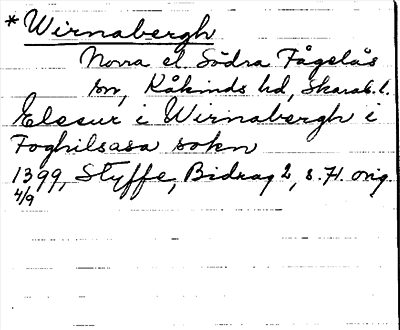 *Wirnabergh
Norra el. Södra Fågelås
sn, Kåkinds hd, Skarab. l.
Elessur i Wirnabergh i
Foghilsasa sokn
1399, Styffe, Bidrag 2, s. 71. orig.
4/9